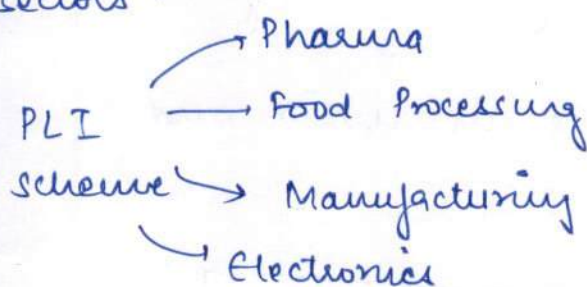 sectors
Pharma
PLI scheme
Food Processing
Manufacturing
Electronics